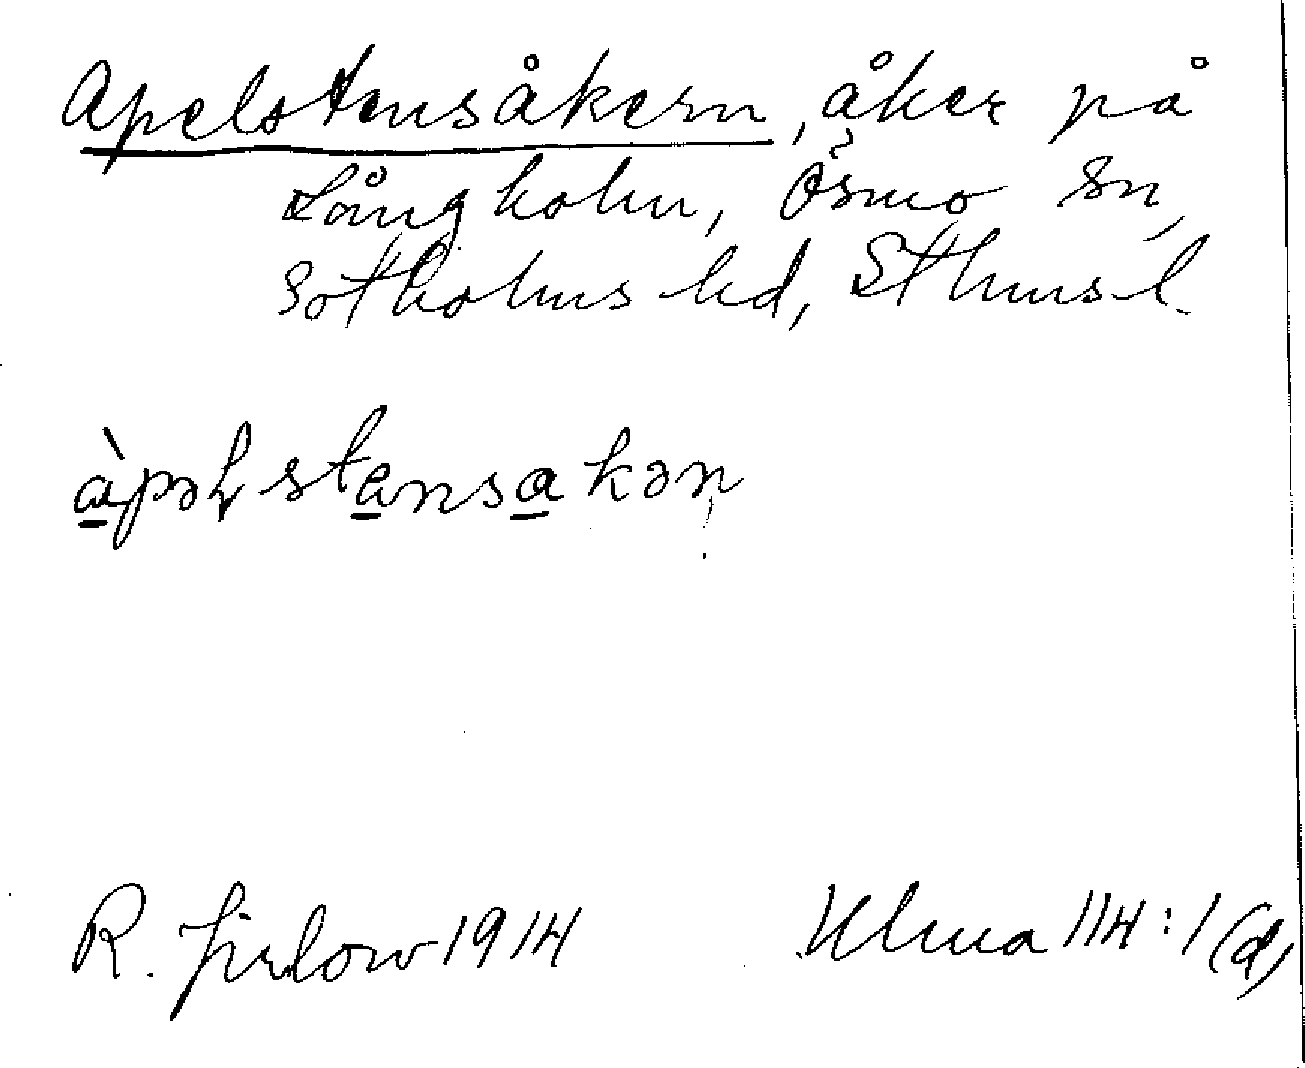 Apelstensåkern, åker på
Långholm, Ösmo sn,
Sotholms hd, Sthms l.
àpəlstensakən
R. Jirlow 1914
Ulma 114:1(d)